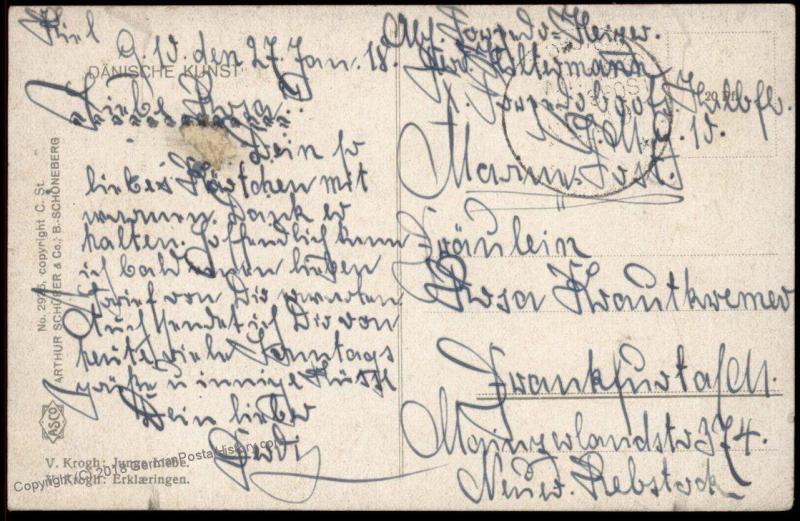 Kiel
G. 10. den 27. Jan. 18.
DÄNISCHE KUNST
Liebe Rosa!
Dein so
liebes Kärtchen mit
warmen Dank er
halten. Hoffendlich kann
ich bald einen lieben
Brief von Dir erwarten
Auch sendet ich Dir von
heute viele Sonntags
grüße u innige Küsse
Dein lieber
Ferdi
No. 2926, copyright C. St.
ARTHUR SCHÜRER & Co.; B.-SCHÖNEBERG
ASCO
V. Krogh: Junge Liebe.
V. Krogh: Erklæringen.
Copyright (C) 2018 GermanPostalHistory.com
Abs. Torpedo-Heizer.
Ferd. Holtermann
Torpedoboots Halbfl.
20 Pf.
Marine-Post.
Fräulein
Rosa Krautkremer
Frankfurt a/M.
Mainzerlandstr 374.
Neuer. Rebstock